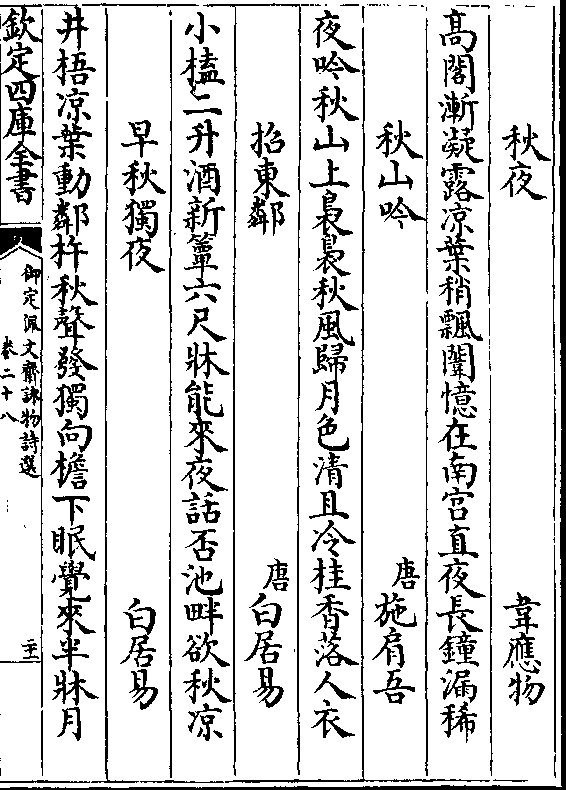 秋夜 韋應物
髙閣漸凝露凉葉稍飄闈憶在南宫直夜長鐘漏稀
秋山吟 唐施肩吾
夜吟秋山上裊裊秋風歸月色清且冷桂香落人衣
招東鄰 唐白居易
小榼二升酒新簟六尺牀能來夜話否池畔欲秋凉
早秋獨夜 白居易
井梧凉葉動鄰杵秋聲發獨向檐下眠覺來半牀月
欽定四庫全書
御定佩文齋詠物詩選
卷二十八